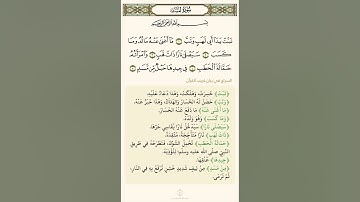 سُورَةُ المَسَدِ
بِسْمِ اللَّهِ الرَّحْمَٰنِ الرَّحِيمِ
تَبَّتْ يَدَا أَبِي لَهَبٍ وَتَبَّ ۝١ مَا أَغْنَىٰ عَنْهُ مَالُهُ وَمَا
كَسَبَ ۝٢ سَيَصْلَىٰ نَارًا ذَاتَ لَهَبٍ ۝٣ وَامْرَأَتُهُ
حَمَّالَةَ الْحَطَبِ ۝٤ فِي جِيدِهَا حَبْلٌ مِّن مَّسَدٍ ۝٥
السراج في بيان غريب القرآن
﴿تَبَّتْ﴾ خَسِرَتْ، وَهَلَكَتْ، وَهَذَا دُعَاءٌ عَلَيْهِ.
﴿وَتَبَّ﴾ حَصَلَ لَهُ الخَسَارُ وَالهَلَاكُ، وَهَذَا خَبَرٌ عَنْهُ.
﴿مَا أَغْنَى عَنْهُ﴾ مَا دَفَعَ عَنْهُ الخَسَارَ.
﴿وَمَا كَسَبَ﴾ وَهُوَ وَلَدُهُ.
﴿سَيَصْلَى نَارًا﴾ سَيَدْخُلُ نَارًا يُقَاسِي حَرَّهَا.
﴿ذَاتَ لَهَبٍ﴾ نَارًا مُتَأَجِّجَةً، مُتَوَقِّدَةً.
﴿حَمَّالَةَ الْحَطَبِ﴾ تَحْمِلُ الشَّوْكَ، فَتَطْرَحُهُ فِي طَرِيقِ
النَّبِيِّ صلى الله عليه وسلم؛ لِتُؤْذِيَهُ.
﴿جِيدِهَا﴾ عُنُقِهَا.
﴿مِنْ مَسَدٍ﴾ مِنْ لِيفٍ شَدِيدٍ خَشِنٍ تُرْفَعُ بِهِ فِي النَّارِ،
ثُمَّ تُرْمَى.